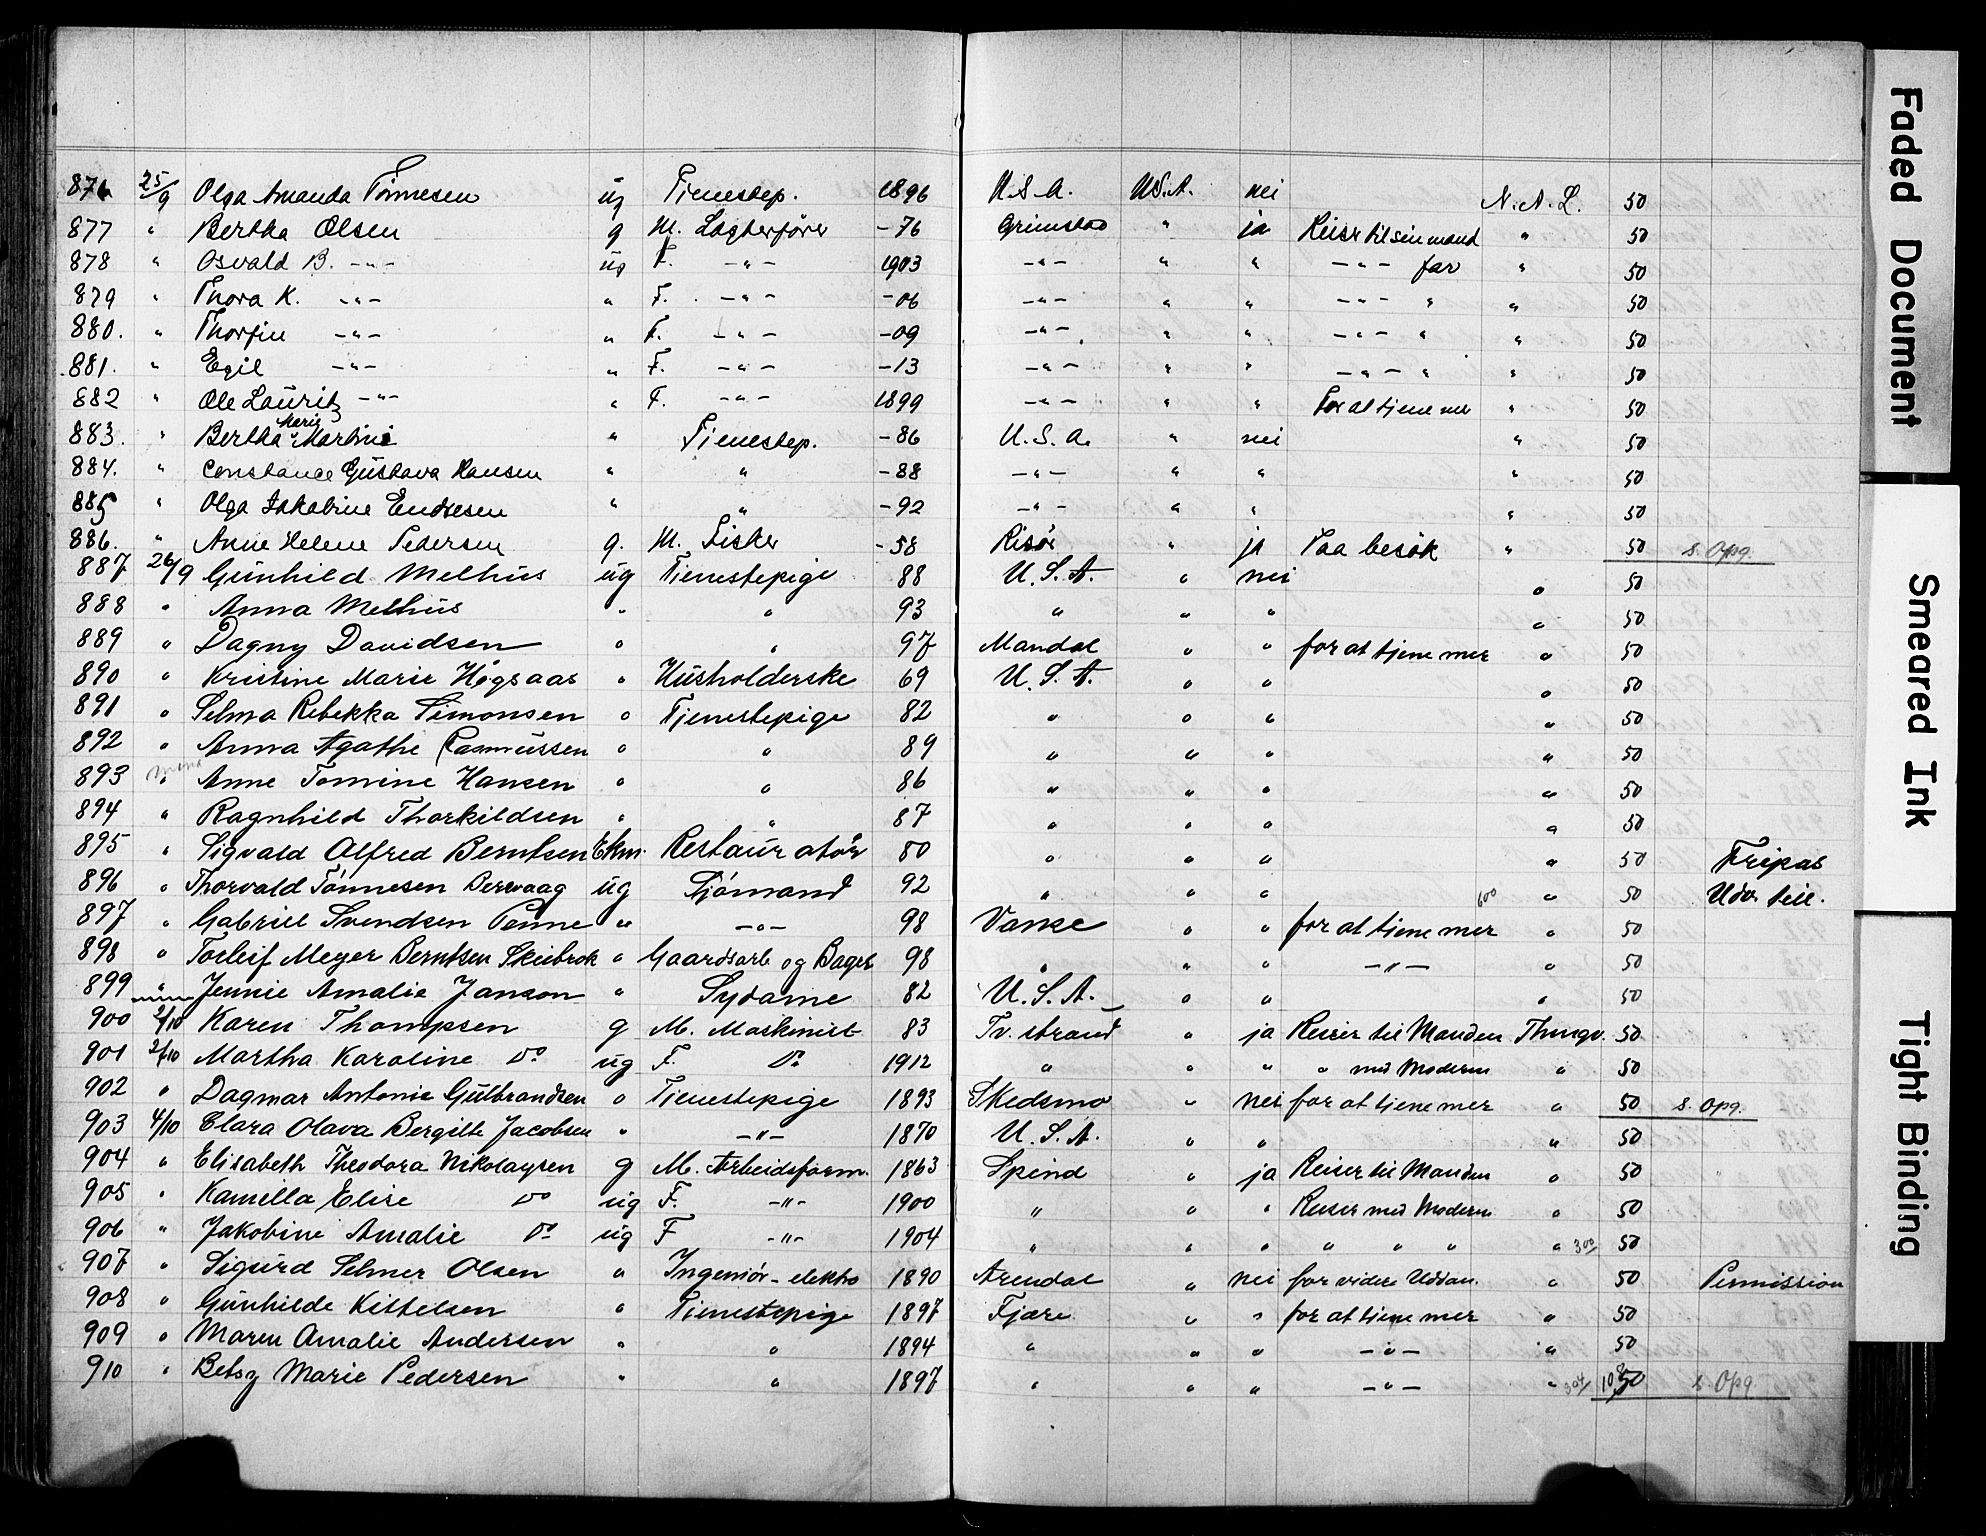 876 25/9 Olga Amanda Tönnesen ug Tienestep. 1896 U.S.A. U.S.A. nei N.A.L. 50
877 " Bertha Olsen g M. Lagterförer -76 Grimstad " ja Reiser til sin mand " 50
878 " Osvald B. -"- ug F. -"- 1903 -"- " " -"- far " 50
879 " Thora K. -"- " F. -"- -06 -"- " " -"- " " 50
880. " Thorfin -"- " F. -"- -09 -"- " " -"- " " 50
881. " Egil -"- " F. -"- -13 -"- " " -"- " " 50
882 " Ole Lauritz -"- " F. -"- 1899 -"- " " For at tjene mer " 50
883. " Bertha Marie Martini " Tienestep. -86 U.S.A. " nei " 50
884. " Constance Gustava Hansen " " -88 -"- " " " 50
885 " Olga Jakobine Endresen " " -92 -"- " " " 50
886. " Anne Helene Pedersen g. M. Fisker -58 Risör " ja Paa besök " 50 s. Opg.
887 26/9 Gunhild Melhus ug Tienestepige 88 U.S.A. " nei " 50
888 " Anna Melhus " " 93 " " " " 50
889 " Dagny Davidsen " " 97 Mandal " " for at tjene mer " 50
890 " Kristine Marie Högsaas " Husholderske 69 U.S.A. " " " 50
891 " Selma Rebekka Simonsen " Tjenestepige 82 " " " " 50
892 " Anna Agathe Rasmussen " " 89 " " " " 50
893 " Anne Tomine Hansen " " 86 " " " " 50
894 " Ragnhild Thorkildsen " " 87 " " " " 50
895 " Sigvald Alfred Berntsen Ekm. Restauratör 80 " " " " 50 Fripas
896 " Thorvald Tönnesen Berevaag ug Sjömand 92 " " " 600 " 50 Udv. till.
897 " Gabriel Svendsen Penne " -"- 98 Vanse " " for at tjene mer " 50
898 " Torleif Meyer Berntsen Skeibrok " Gaardsarb og Bager 98 " " " -"- " 50
899 " Jennie Amalie Janson " Sydame 82 U.S.A. " " " 50
900 2/10 Karen Thompsen g M. Maskinist 83 Tv. strand " ja Reiser til Manden Thingv. 50
901 2/10 Martha Karoline Do ug F. Do 1912 " " " " med Moderen " 50
902 " Dagmar Antonie Gulbrandsen " Tienestepige 1893 Skedsmo " nei for at tjene mer " 50 s. Opg.
903 4/10 Clara Olava Bergitte Jacobsen " -"- 1870 U.S.A. " " " 50
904 " Elisabeth Theodora Nikolaysen g M. Arbeidsform. 1863 Spind " ja Reiser til Manden " 50
905 " Kamilla Elise Do ug F. -"- 1900 " " " Reiser med Moderen " 50
906 " Jakobine Amalie Do ug F -"- 1904 " " " " " " " 300/ 50
907 " Sigurd Selmer Olsen " Ingeniör-elektro 1890 Arendal " nei for videre Uddan. " 50 Permission
908 " Gunhilde Kittelsen " Tienestepige 1897 Fjære " " for at tjene mer " 50
909 " Maren Amalie Andersen " " 1894 " " " -"- " 50
910 " Betsy Marie Pedersen " " 1897 " " " -"- " 304/ 50 s. Opg
Faded Document
Smeared Ink
Tight Binding